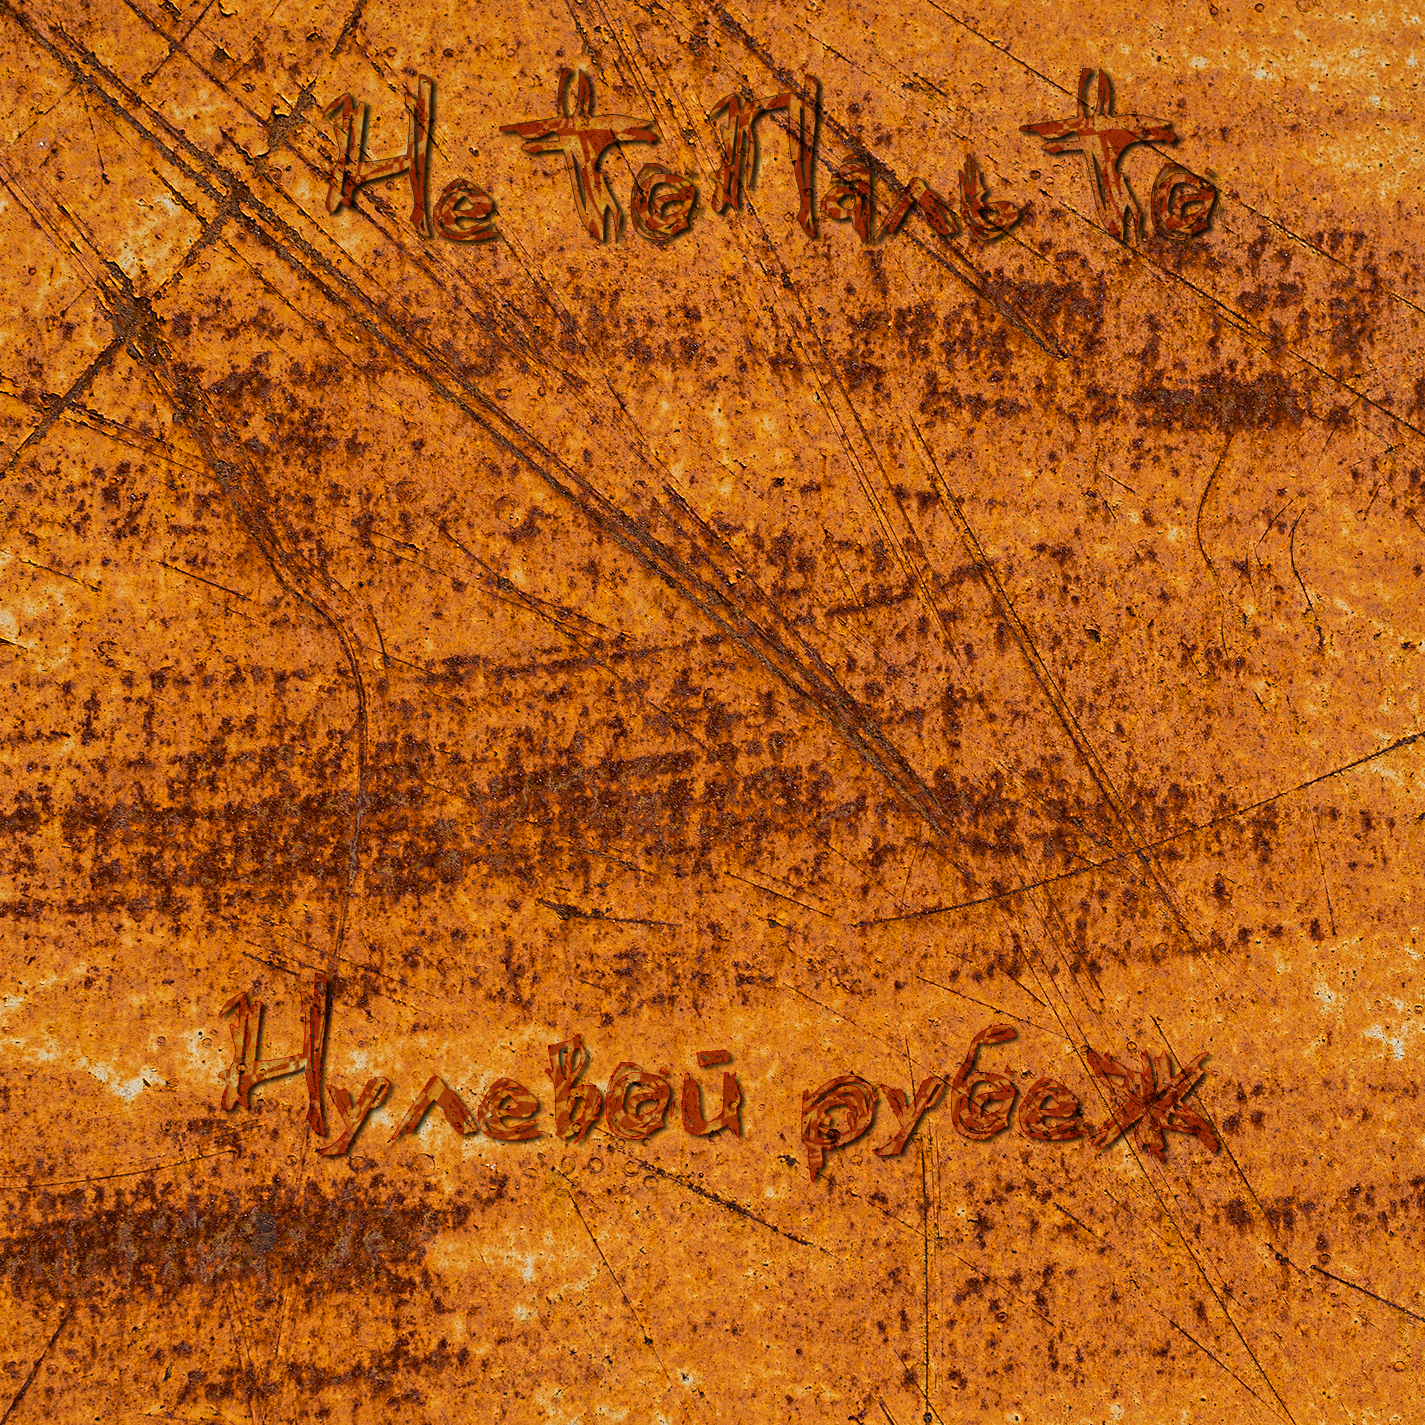 Не тоПаль то
Нулевой рубеж